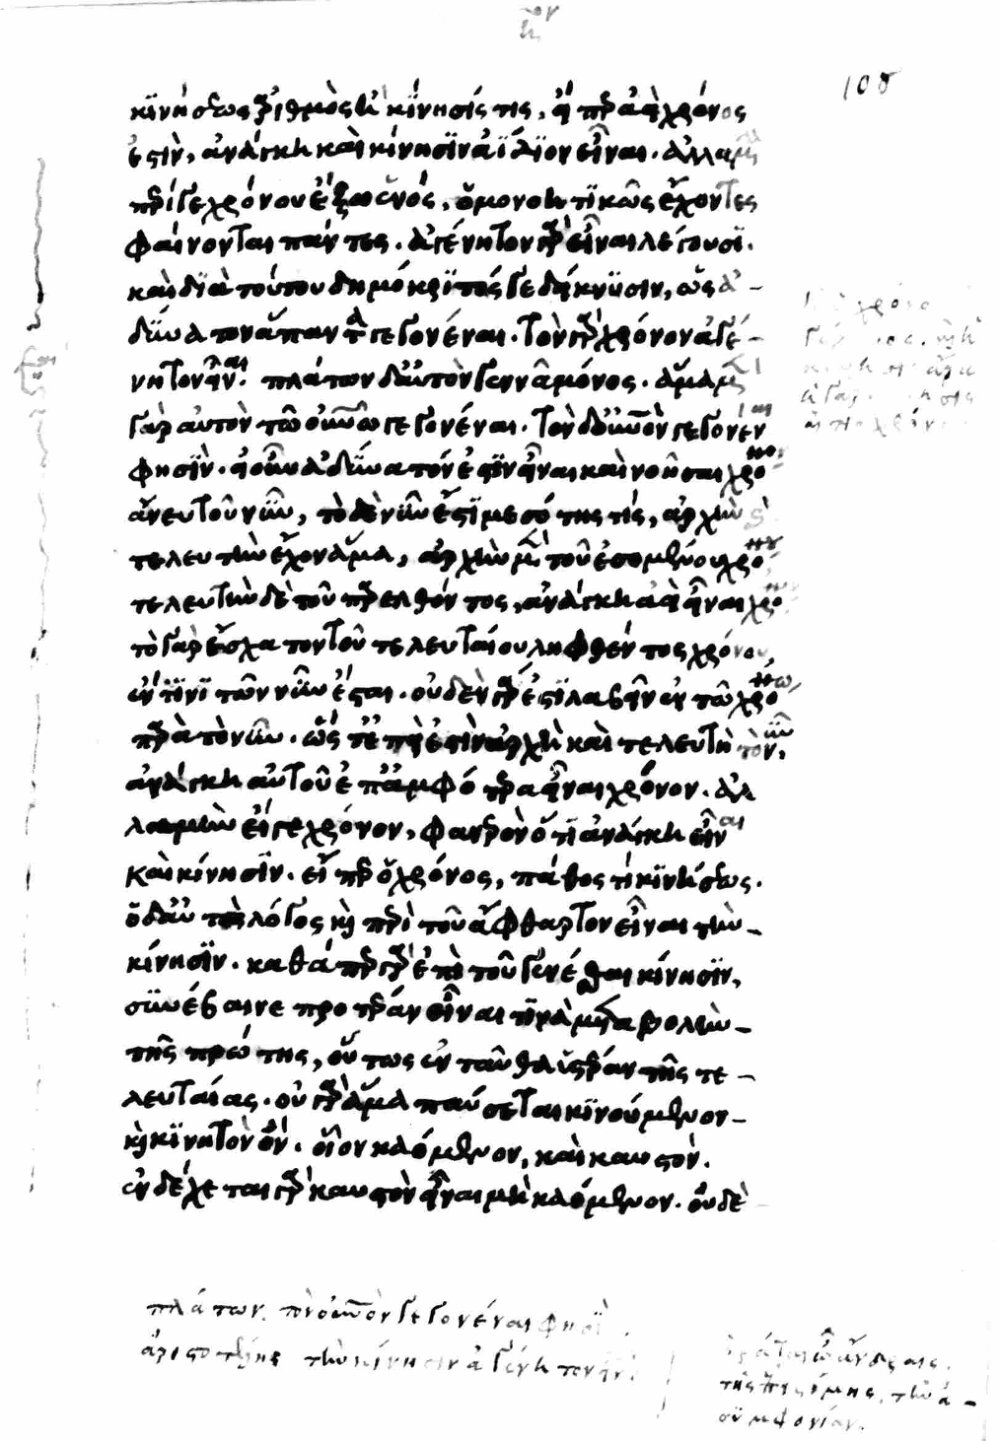 108
κινήσεως ἀριθμὸς ἢ κίνησίς τις, εἴπερ ἀεὶ χρόνος
ἐστὶν, ἀνάγκη καὶ κίνησιν ἀΐδιον εἶναι. ἀλλὰ μὴν
περί γε χρόνου ἔξω ἑνός, ὁμονοητικῶς ἔχοντες
φαίνονται πάντες. ἀγένητον γὰρ εἶναι λέγουσι.
καὶ διὰ τούτου δημόκριτός γε δείκνυσιν, ὡς ἀ-
δύνατον ἅπαντα γεγονέναι. τὸν γὰρ χρόνον ἀγέ-
νητον εἶναι. πλάτων δ' αὐτὸν γεννᾷ μόνος. ἅμα μὲν
γὰρ αὐτὸν τῷ οὐρανῷ γεγονέναι. τὸν δ' οὐρανὸν γεγονέναι
φησίν. εἰ οὖν ἀδύνατόν ἐστιν εἶναι καὶ νοῆσαι χρόνον
ἄνευ τοῦ νῦν, τὸ δὲ νῦν ἐστὶ μεσότης τίς, ἀρχὴν καὶ
τελευτὴν ἔχον ἅμα, ἀρχὴν μὲν τοῦ ἐσομένου χρόνου,
τελευτὴν δὲ τοῦ παρελθόντος, ἀνάγκη ἀεὶ εἶναι χρόνον.
τὸ γὰρ ἔσχατον τοῦ τελευταίου ληφθέντος χρόνου,
ἔν τινι τῶν νῦν ἔσται. οὐδὲν γὰρ ἐστὶ λαβεῖν ἐν τῷ χρόνῳ,
παρὰ τὸ νῦν. ὥστ' ἐπεὶ ἐστὶν ἀρχὴ καὶ τελευτὴ τὸ νῦν,
ἀνάγκη αὐτοῦ ἐπ' ἀμφότερα εἶναι χρόνον. ἀλ
λα μὴν εἴ γε χρόνον, φανερὸν ὅτι ἀνάγκη εἶναι
καὶ κίνησιν. εἴπερ ὁ χρόνος, πάθος τι κινήσεως.
ὁ δ' αὐτὸς λόγος καὶ περὶ τοῦ ἄφθαρτον εἶναι τὴν
κίνησιν. καθάπερ γὰρ ἐπὶ τοῦ γενέσθαι κίνησιν,
συνέβαινε προτέραν εἶναι τινὰ μεταβολὴν
τῆς πρώτης, οὕτως ἐνταῦθα ὑστέραν τῆς τε-
λευταίας. οὐ γὰρ ἅμα παύσεται κινούμενον
καὶ κινητὸν ὄν. οἷον καόμενον, καὶ καυστόν.
ἐνδέχεται γὰρ καυστὸν εἶναι μὴ καόμενον. οὐδὲ
πλάτων τὸν οὐρανὸν γεγονέναι φησὶ
ἀριστοτέλης τὴν κίνησιν ἀγένητον